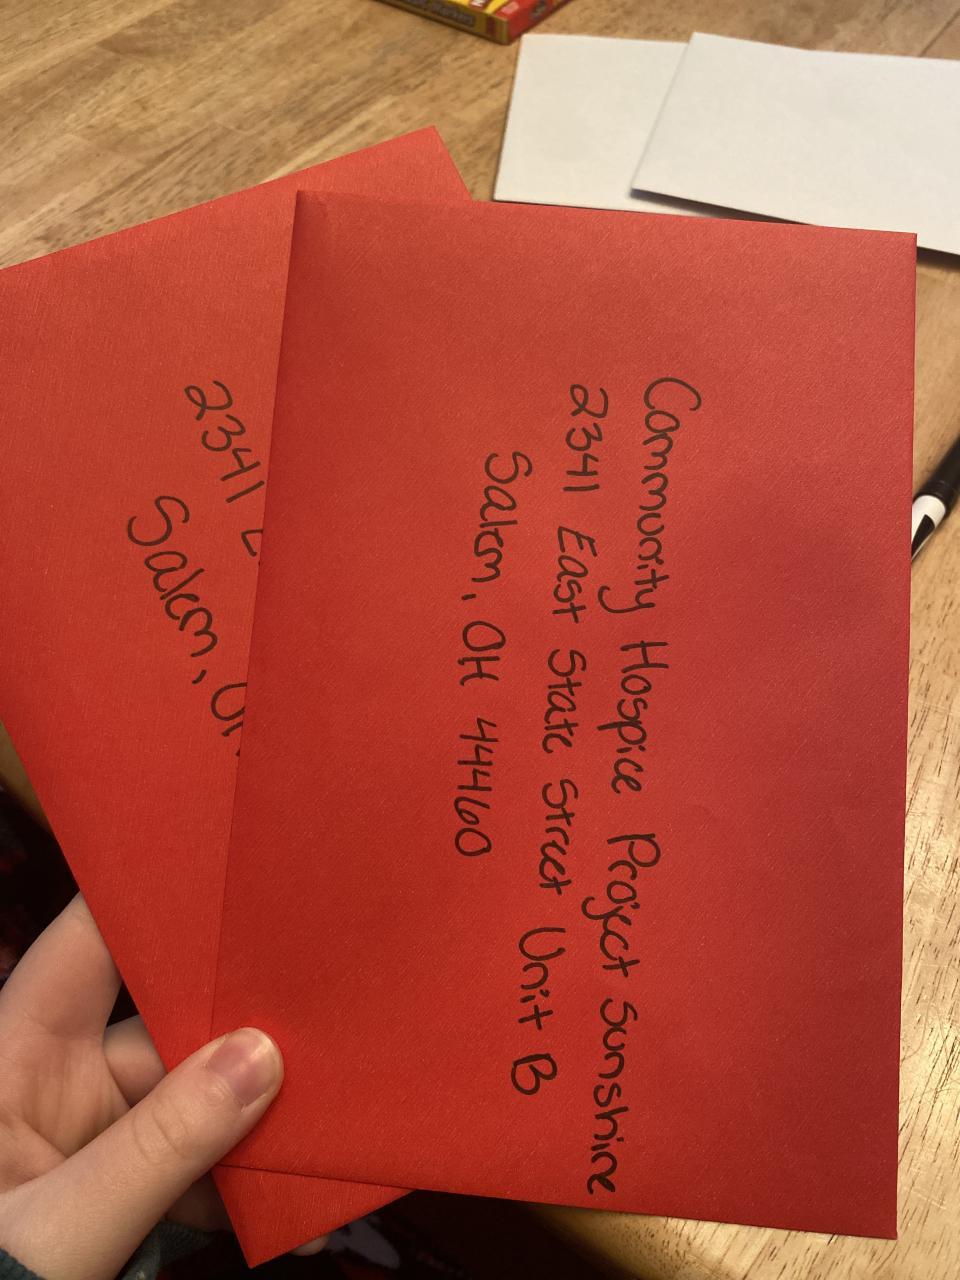 Community Hospice Project Sunshine
2341 East State Street Unit B
Salem, OH 44460
2341
Salem,